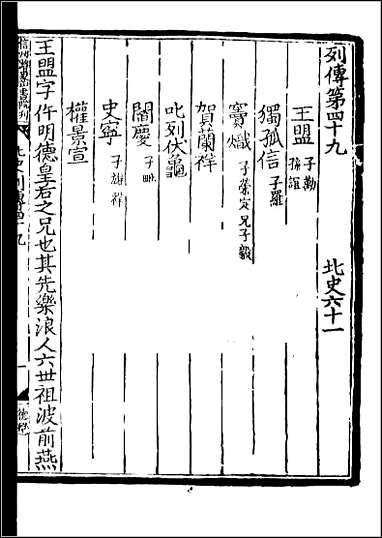 列傳第四十九 北史六十一
王盟 子勱 孫誼
獨孤信 子羅
竇熾 子榮定 兄子毅
賀蘭祥
叱列伏龜
閻慶 子毗
史寧 子雄 祥
權景宣
王盟字仵明德皇后之兄也其先樂浪人六世祖波前燕
北史列傳四十九